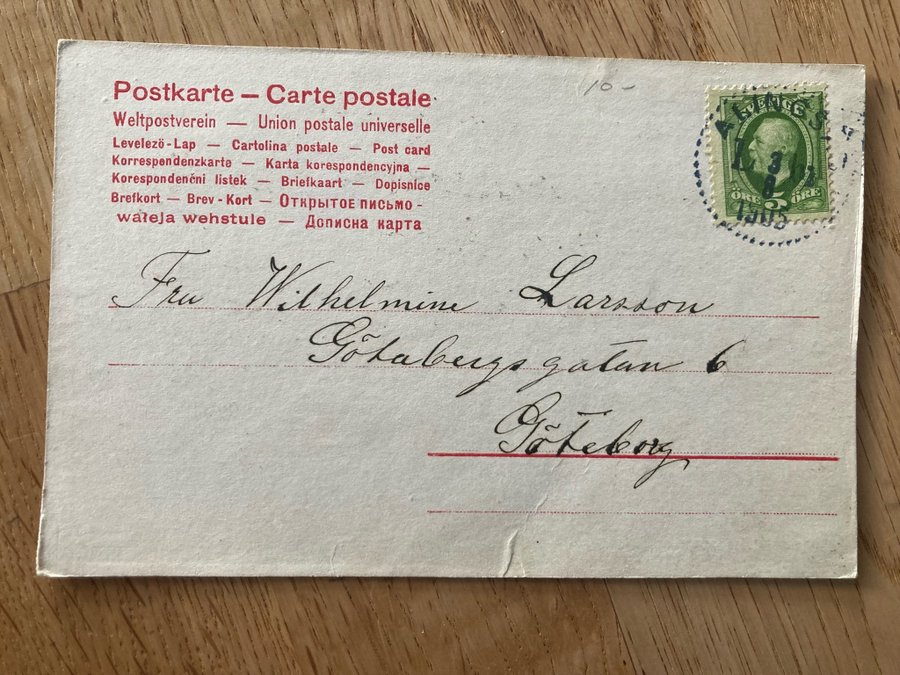 10-
Postkarte – Carte postale
Weltpostverein — Union postale universelle
Levelezö-Lap — Cartolina postale — Post card
Korrespondenzkarte — Karta korespondencyjna —
Korespondenční listek — Briefkaart — Dopisnice
Brefkort — Brev-Kort — Открытое письмо -
waleja wehstule — Дописна карта
SVERIGE
ÖRE 5 ÖRE
ALINGS
3
8
1905
Fru Wilhelmine Larsson
Götabergsgatan 6
Göteborg